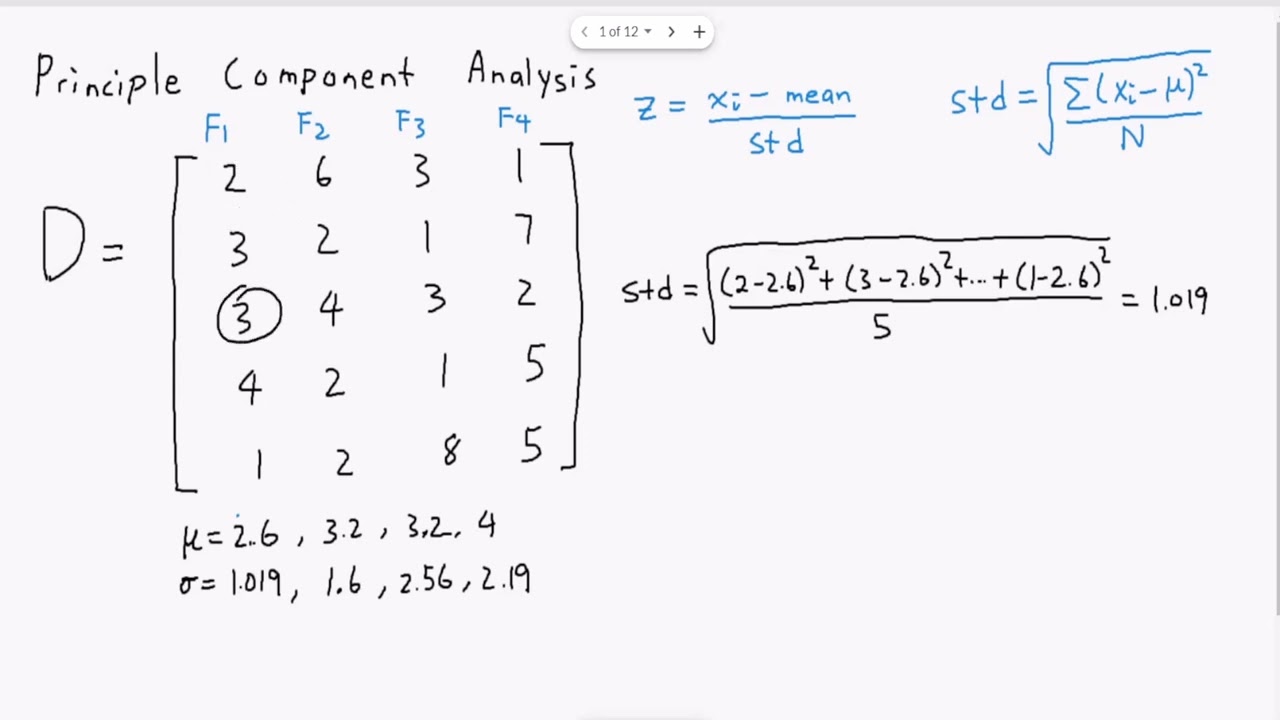 1 of 12
Principle Component Analysis
z = xi - mean / std
std = √(Σ(xi - μ)² / N)
F1 F2 F3 F4
D =
2 6 3 1
3 2 1 7
3 4 3 2
4 2 1 5
1 2 8 5
std = √((2-2.6)² + (3-2.6)² + ... + (1-2.6)² / 5) = 1.019
μ = 2.6 , 3.2 , 3.2, 4
σ = 1.019, 1.6 , 2.56, 2.19